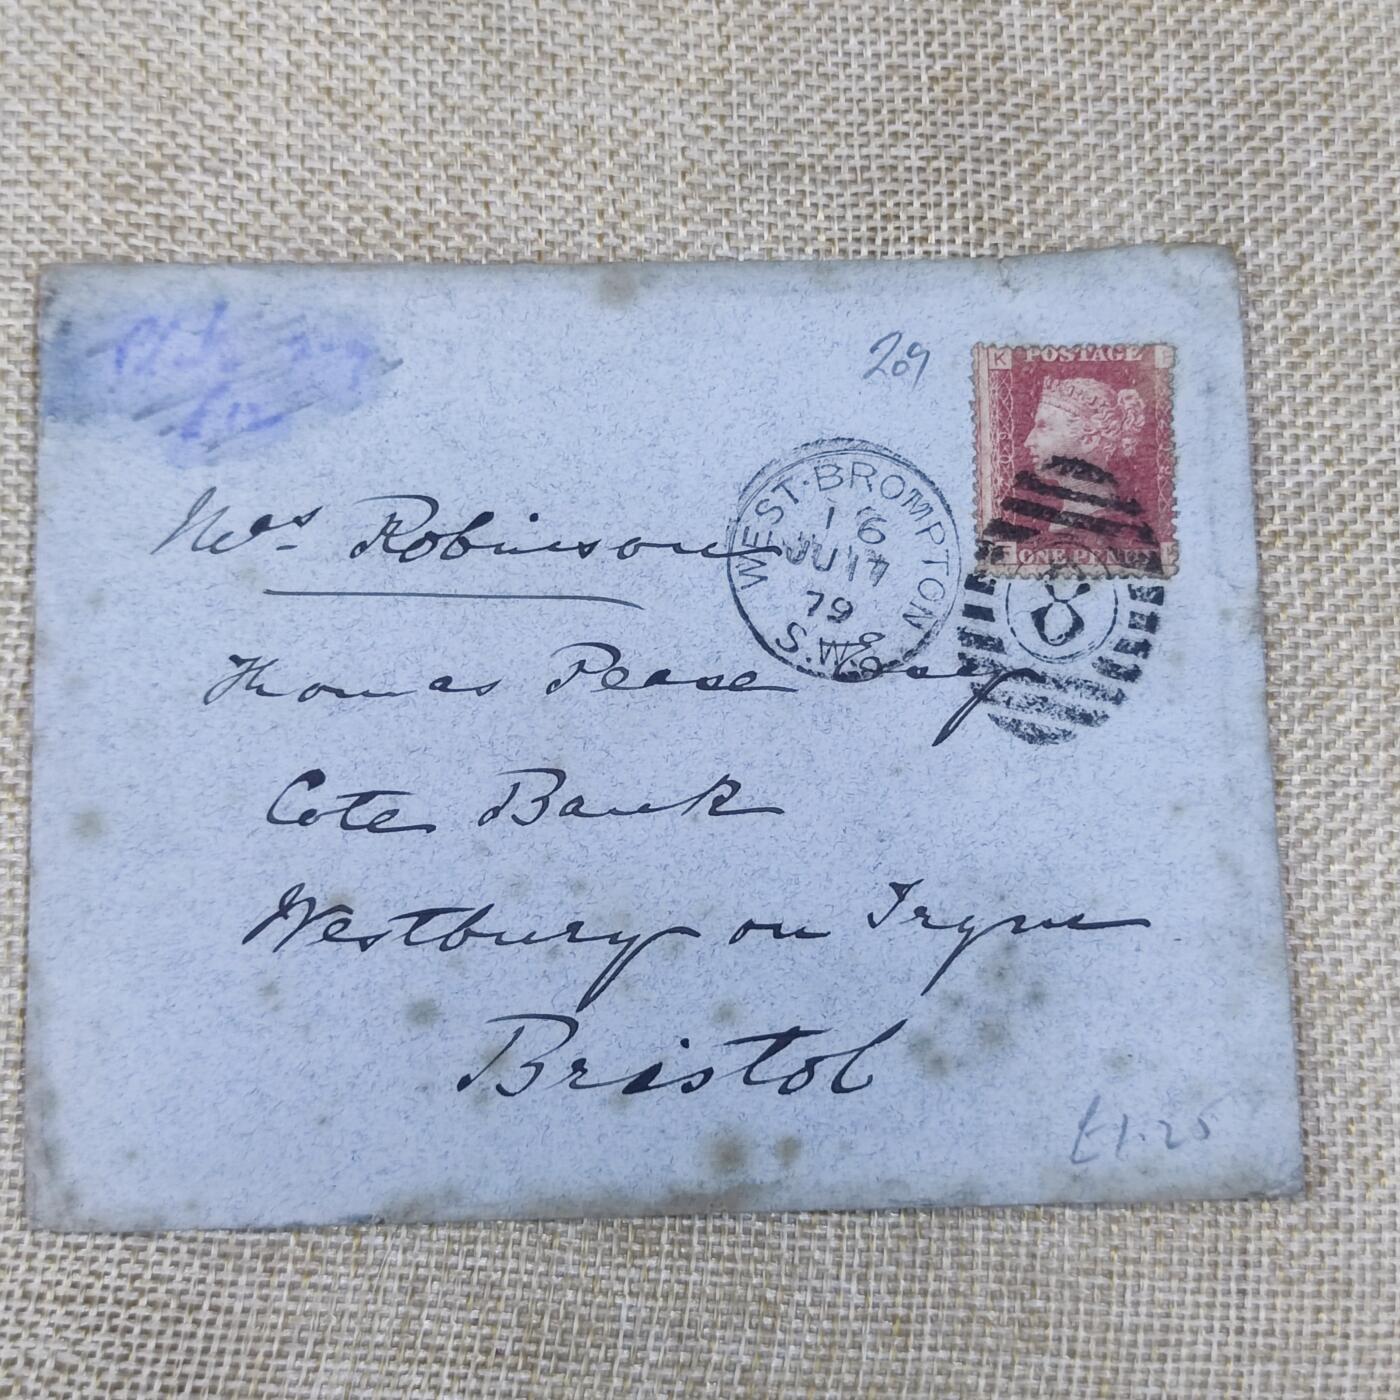 209
K POSTAGE F
F ONE PENNY K
WEST·BROMPTON
1 6
JU 17
79
S.W.
8
Mrs. Robinson
Thomas Pease Esq
Cote Bank
Westbury on Trym
Bristol
£1.25